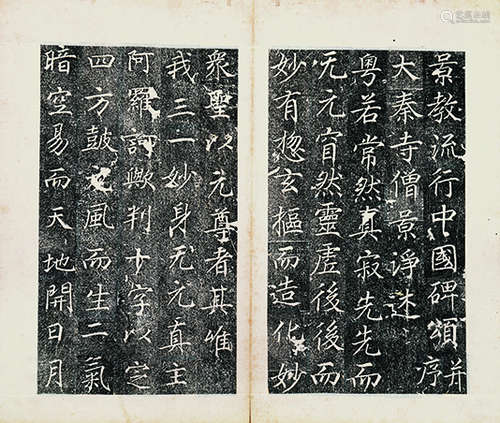 景教流行中國碑頌并序
大秦寺僧景淨述
粵若常然真寂先先而
无元窅然靈虛後後而
妙有惣玄樞而造化妙
衆聖以元尊者其唯
我三一妙身无元真主
阿羅訶歟判十字以定
四方鼓元風而生二氣
暗空易而天地開日月